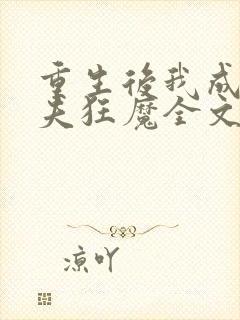 重生後我成
夫狂魔全文
凉吖